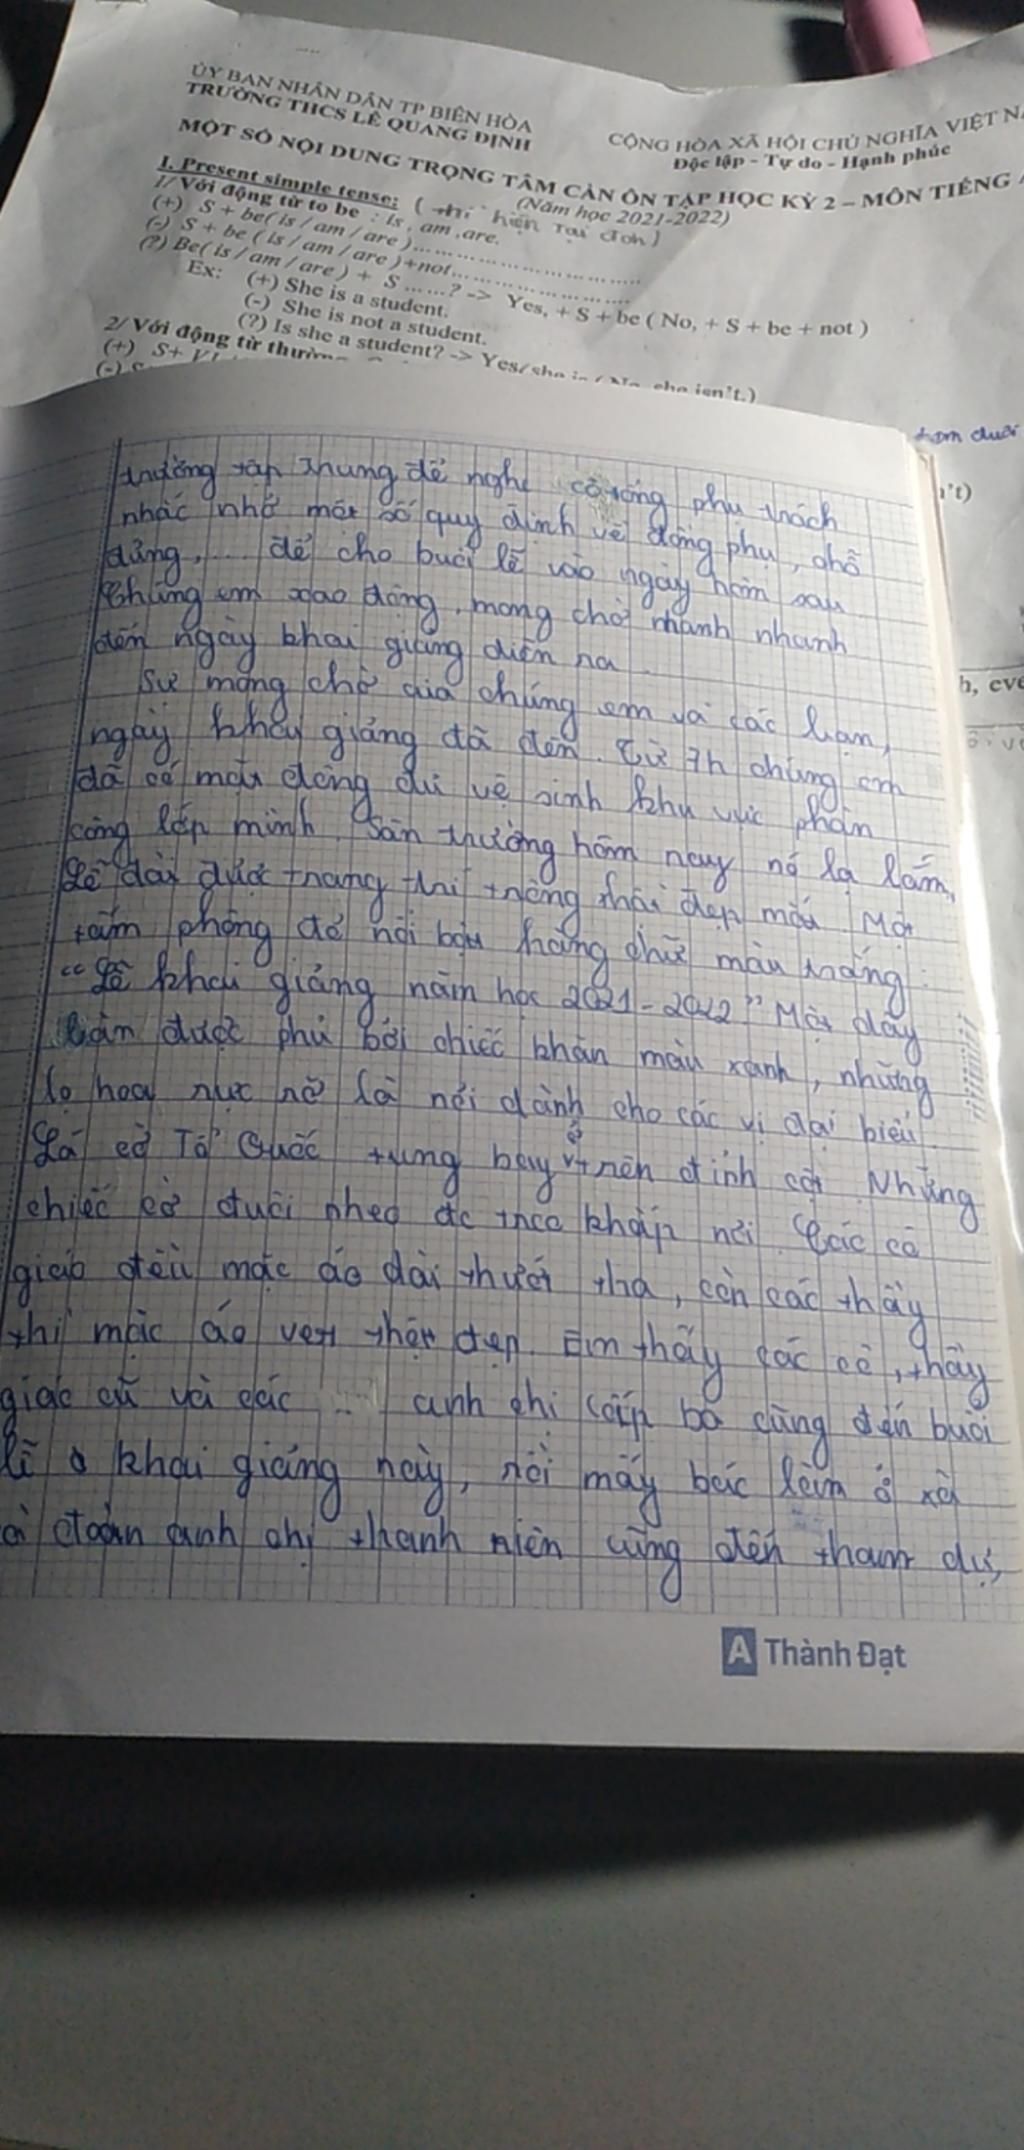 ỦY BAN NHÂN DÂN TP BIÊN HÒA
TRƯỜNG THCS LÊ QUANG ĐỊNH
CỘNG HÒA XÃ HỘI CHỦ NGHĨA VIỆT
Độc lập - Tự do - Hạnh phúc
MỘT SỐ NỘI DUNG TRỌNG TÂM CẦN ÔN TẬP HỌC KỲ 2 – MÔN TIẾNG
(Năm học 2021-2022)
I. Present simple tense: (thì hiện tại đơn)
1/ Với động từ to be : is, am, are.
(+) S + be( is / am / are )..........
(-) S + be ( is / am / are )+not..........
(?) Be( is / am / are ) + S ......? -> Yes, + S + be ( No, + S + be + not )
Ex: (+) She is a student.
(-) She is not a student.
(?) Is she a student? -> Yes, she is ( No, she isn't.)
2/ Với động từ thường
(+) S+
đuôi
't)
h, eve
trường tập trung để nghe cô tổng phụ trách
nhắc nhở một số quy định về đồng phụ, chỗ
đứng, ... để cho buổi lễ vào ngày hôm sau
Chúng em xao động, mong chờ nhanh nhanh
đến ngày khai giảng diễn ra
Sự mong chờ của chúng em và các bạn,
ngày khai giảng đã đến. Từ 7h chúng em
đã có mặt đông đủ vệ sinh khu vực phân
công lớp mình. Sân trường hôm nay nó lạ lắm,
Lễ đài được trang trí trông thật đẹp mắt. Một
tấm phông đỏ nổi bật hàng chữ màu trắng:
"Lễ khai giảng năm học 2021-2022" Một dãy
bàn được phủ bởi chiếc khăn màu xanh, những
lọ hoa rực rỡ là nơi dành cho các vị đại biểu.
Lá cờ Tổ Quốc tung bay ở trên đỉnh cột. Những
chiếc cờ đuôi nheo đc treo khắp nơi. Các cô
giáo đều mặc áo dài thướt tha, còn các thầy
thì mặc áo vest thật đẹp. Em thấy các cô, thầy
giáo cũ và các ... anh chị cấp ba cũng đến buổi
lễ khai giảng này, rồi mấy bác làm ở xã
đoàn anh chị thanh niên cũng đến tham dự,
A Thành Đạt